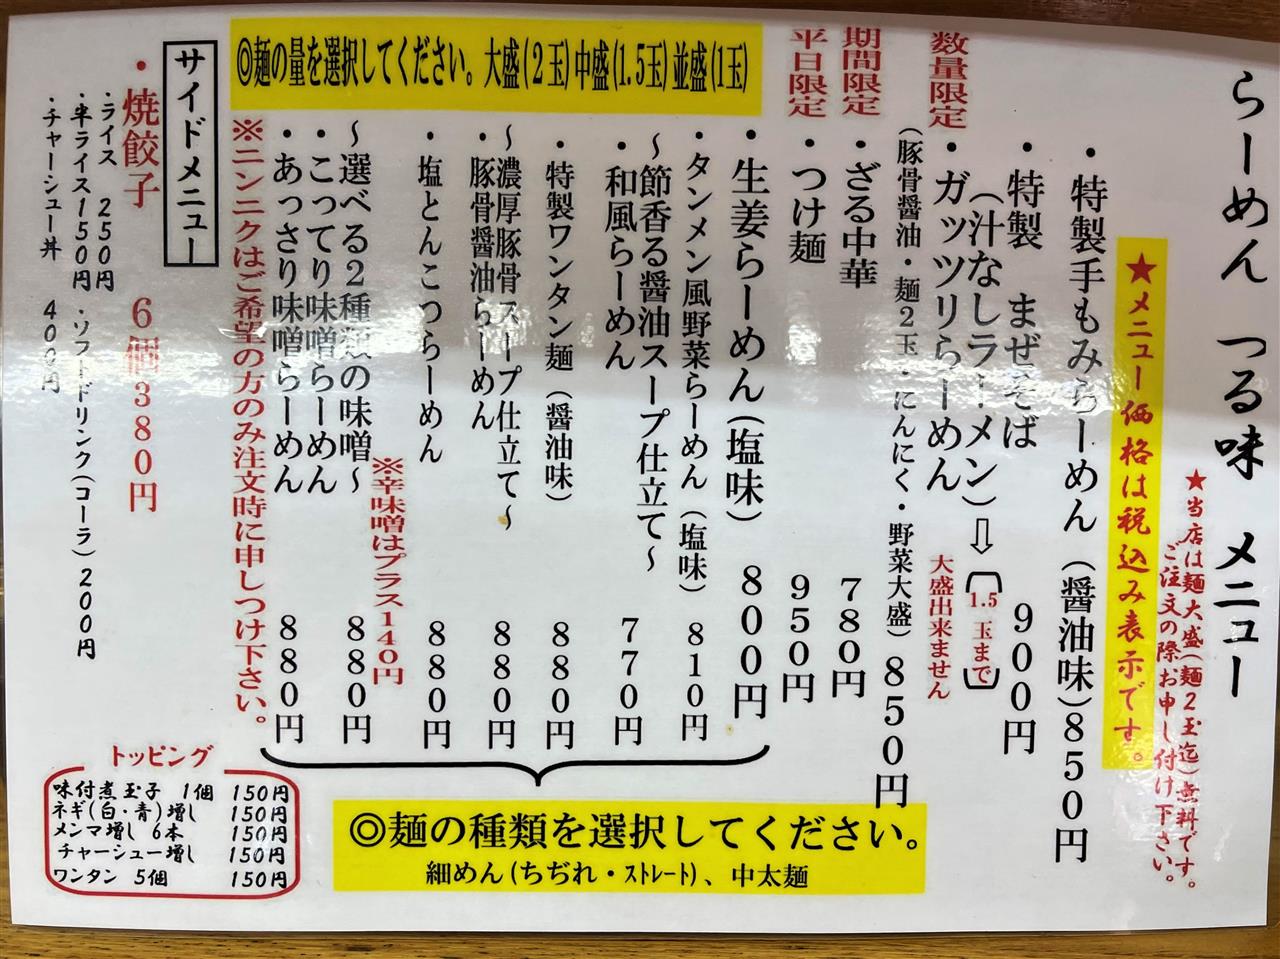 らーめん つる味 メニュー
★当店は麺大盛(麺2玉迄)無料です。
ご注文の際お申し付け下さい。
★メニュー価格は税込み表示です。
・特製手もみらーめん(醤油味)850円
・特製 まぜそば 900円
(汁なしラーメン)⇨(1.5玉まで)
大盛出来ません
数量限定
・ガッツリらーめん 850円
(豚骨醤油・麺2玉・にんにく・野菜大盛)
期間限定
・ざる中華 780円
平日限定
・つけ麺 950円
◎麺の量を選択してください。大盛(2玉)中盛(1.5玉)並盛(1玉)
・生姜らーめん(塩味) 800円
・タンメン風野菜らーめん(塩味) 810円
〜節香る醤油スープ仕立て〜
・和風らーめん 770円
・特製ワンタン麺(醤油味) 880円
〜濃厚豚骨スープ仕立て〜
・豚骨醤油らーめん 880円
・塩とんこつらーめん 880円
※辛味噌はプラス140円
〜選べる2種類の味噌〜
・こってり味噌らーめん 880円
・あっさり味噌らーめん 880円
※ニンニクはご希望の方のみ注文時に申しつけ下さい。
◎麺の種類を選択してください。
細めん(ちぢれ・ストレート)、中太麺
サイドメニュー
・焼餃子 6個380円
・ライス 250円
・半ライス150円
・チャーシュー丼 400円
・ソフードリンク(コーラ)200円
トッピング
味付煮玉子 1個 150円
ネギ(白・青)増し 150円
メンマ増し 6本 150円
チャーシュー増し 150円
ワンタン 5個 150円